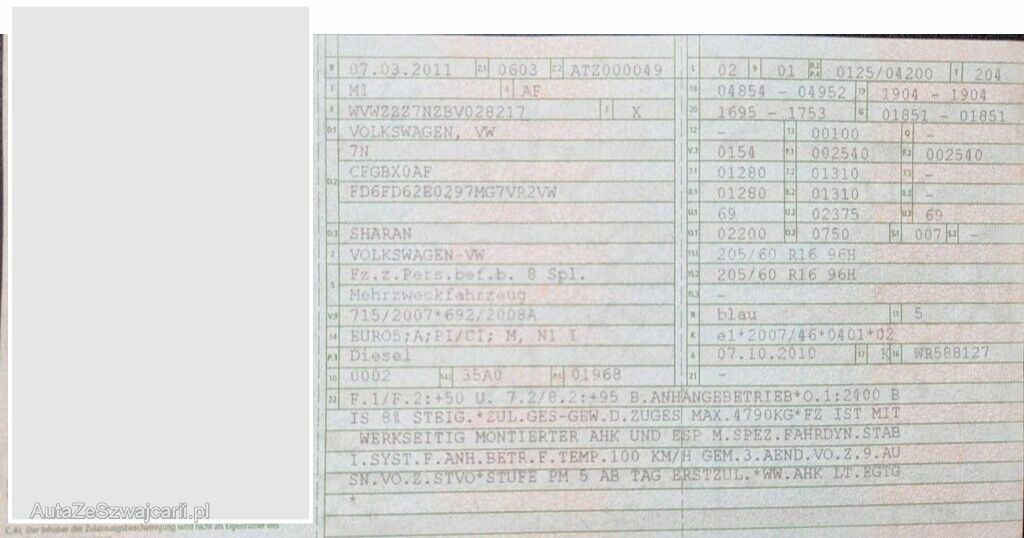 B 07.03.2011 2.1 0603 2.2 ATZ000049
J M1 4 AF
E WVWZZZ7NZBV028217 3 X
D.1 VOLKSWAGEN, VW
7N
D.2 CFGBX0AF
FD6FD62E0297MG7VR2VW
D.3 SHARAN
2 VOLKSWAGEN-VW
5 Fz.z.Pers.bef.b. 8 Spl.
Mehrzweckfahrzeug
V.9 715/2007*692/2008A
14 EURO5;A;PI/CI; M, N1 I
P.3 Diesel
10 0002 14.1 35A0 P.1 01968
L 02 9 01 P.2 P.4 0125/04200 T 204
18 04854 - 04952 19 1904 - 1904
20 1695 - 1753 G 01851 - 01851
12 - 13 00100 Q -
V.7 0154 F.1 002540 F.2 002540
7.1 01280 7.2 01310 7.3 -
8.1 01280 8.2 01310 8.3 -
U.1 69 U.2 02375 U.3 69
O.1 02200 O.2 0750 S.1 007 S.2 -
15.1 205/60 R16 96H
15.2 205/60 R16 96H
15.3 -
R blau 11 5
K e1*2007/46*0401*02
6 07.10.2010 17 K 16 WR588127
21 -
22 F.1/F.2:+50 U. 7.2/8.2:+95 B.ANHÄNGEBETRIEB*O.1:2400 B
IS 8% STEIG.*ZUL.GES-GEW.D.ZUGES MAX.4790KG*FZ IST MIT
WERKSEITIG MONTIERTER AHK UND ESP M.SPEZ.FAHRDYN.STAB
I.SYST.F.ANH.BETR.F.TEMP.100 KM/H GEM.3.AEND.VO.Z.9.AU
SN.VO.Z.STVO*STUFE PM 5 AB TAG ERSTZUL.*WW.AHK LT.EGTG
*
AutaZeSzwajcarii.pl
C.4c Der Inhaber der Zulassungsbescheinigung wird nicht als Eigentümer des